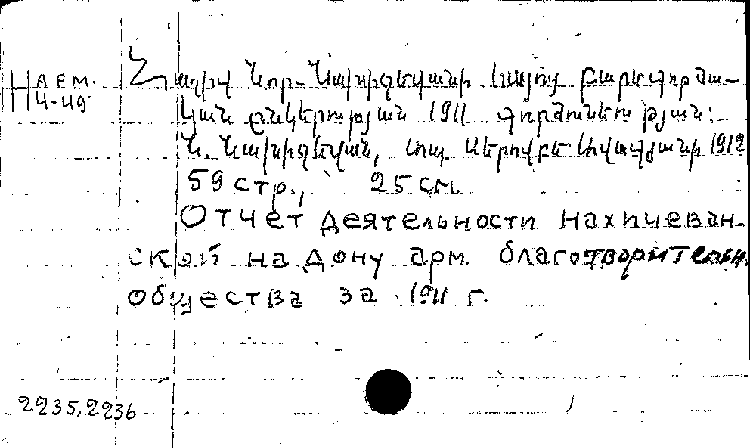 Н АЕМ.
4-49
Հաշիվ Նոր-Նախիջեվանի հայոց բարեգործա-
կան ընկերության 1911 գործունեության:
Ն. Նախիջեվան, տպ. 1912
59 стр., 25 см.
Отчет деятельности нахичеван-
ской на Дону арм. благотворительн.
общества за 1911 г.
2235,2236